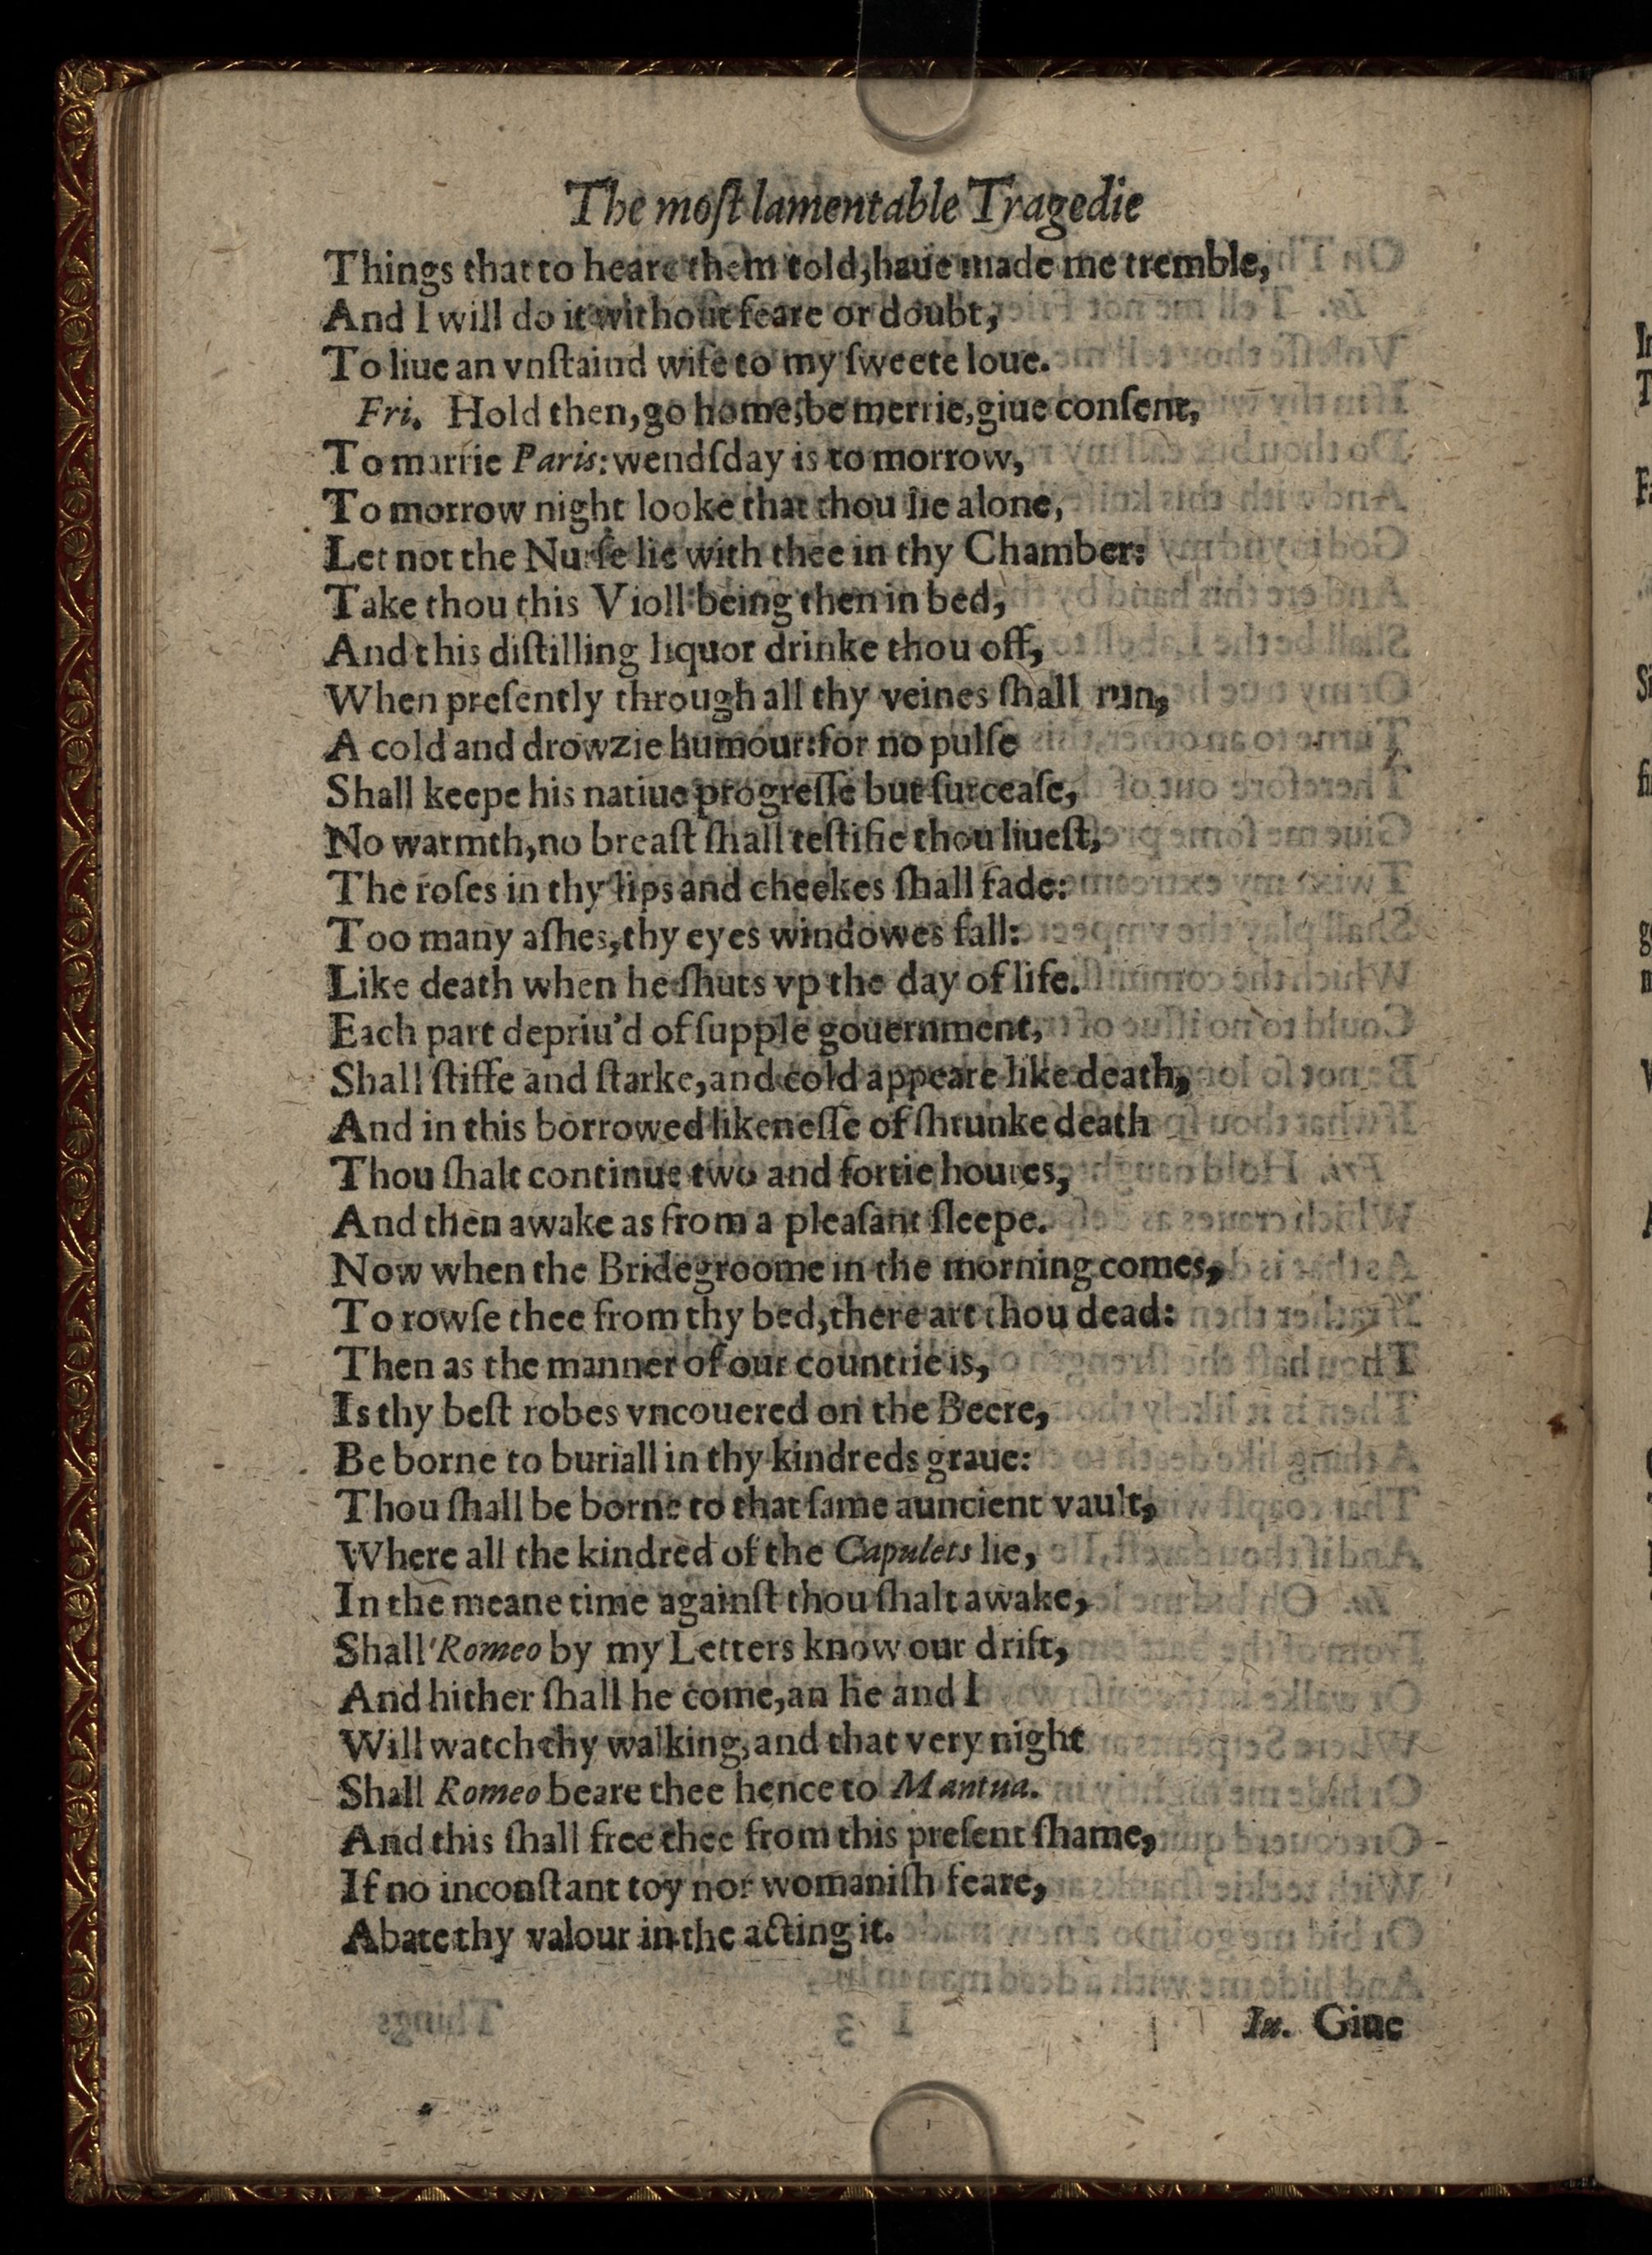 The moſt lamentable Tragedie
Things that to heare them told, haue made me tremble,
And I will do it without feare or doubt,
To liue an vnſtaind wife to my ſweete loue.
Fri. Hold then, go home, be merrie, giue conſent,
To marrie Paris: wendſday is to morrow,
To morrow night looke that thou lie alone,
Let not the Nurſe lie with thee in thy Chamber:
Take thou this Violl being then in bed,
And this diſtilling liquor drinke thou off,
When preſently through all thy veines ſhall run,
A cold and drowzie humour: for no pulſe
Shall keepe his natiue progreſſe but ſurceaſe,
No warmth, no breaſt ſhall teſtifie thou liueſt,
The roſes in thy lips and cheekes ſhall fade:
Too many aſhes, thy eyes windowes fall:
Like death when he ſhuts vp the day of life.
Each part depriu'd of ſupple gouernment,
Shall ſtiffe and ſtarke, and cold appeare like death,
And in this borrowed likeneſſe of ſhrunke death
Thou ſhalt continue two and fortie houres,
And then awake as from a pleaſant ſleepe.
Now when the Bridegroome in the morning comes,
To rowſe thee from thy bed, there art thou dead:
Then as the manner of our countrie is,
Is thy beſt robes vncouered on the Beere,
Be borne to buriall in thy kindreds graue:
Thou ſhall be borne to that ſame auncient vault,
Where all the kindred of the Capulets lie,
In the meane time againſt thou ſhalt awake,
Shall Romeo by my Letters know our drift,
And hither ſhall he come, an he and I
Will watch thy walking, and that very night
Shall Romeo beare thee hence to Mantua.
And this ſhall free thee from this preſent ſhame,
If no inconſtant toy nor womaniſh feare,
Abate thy valour in the acting it.
Iu. Giue